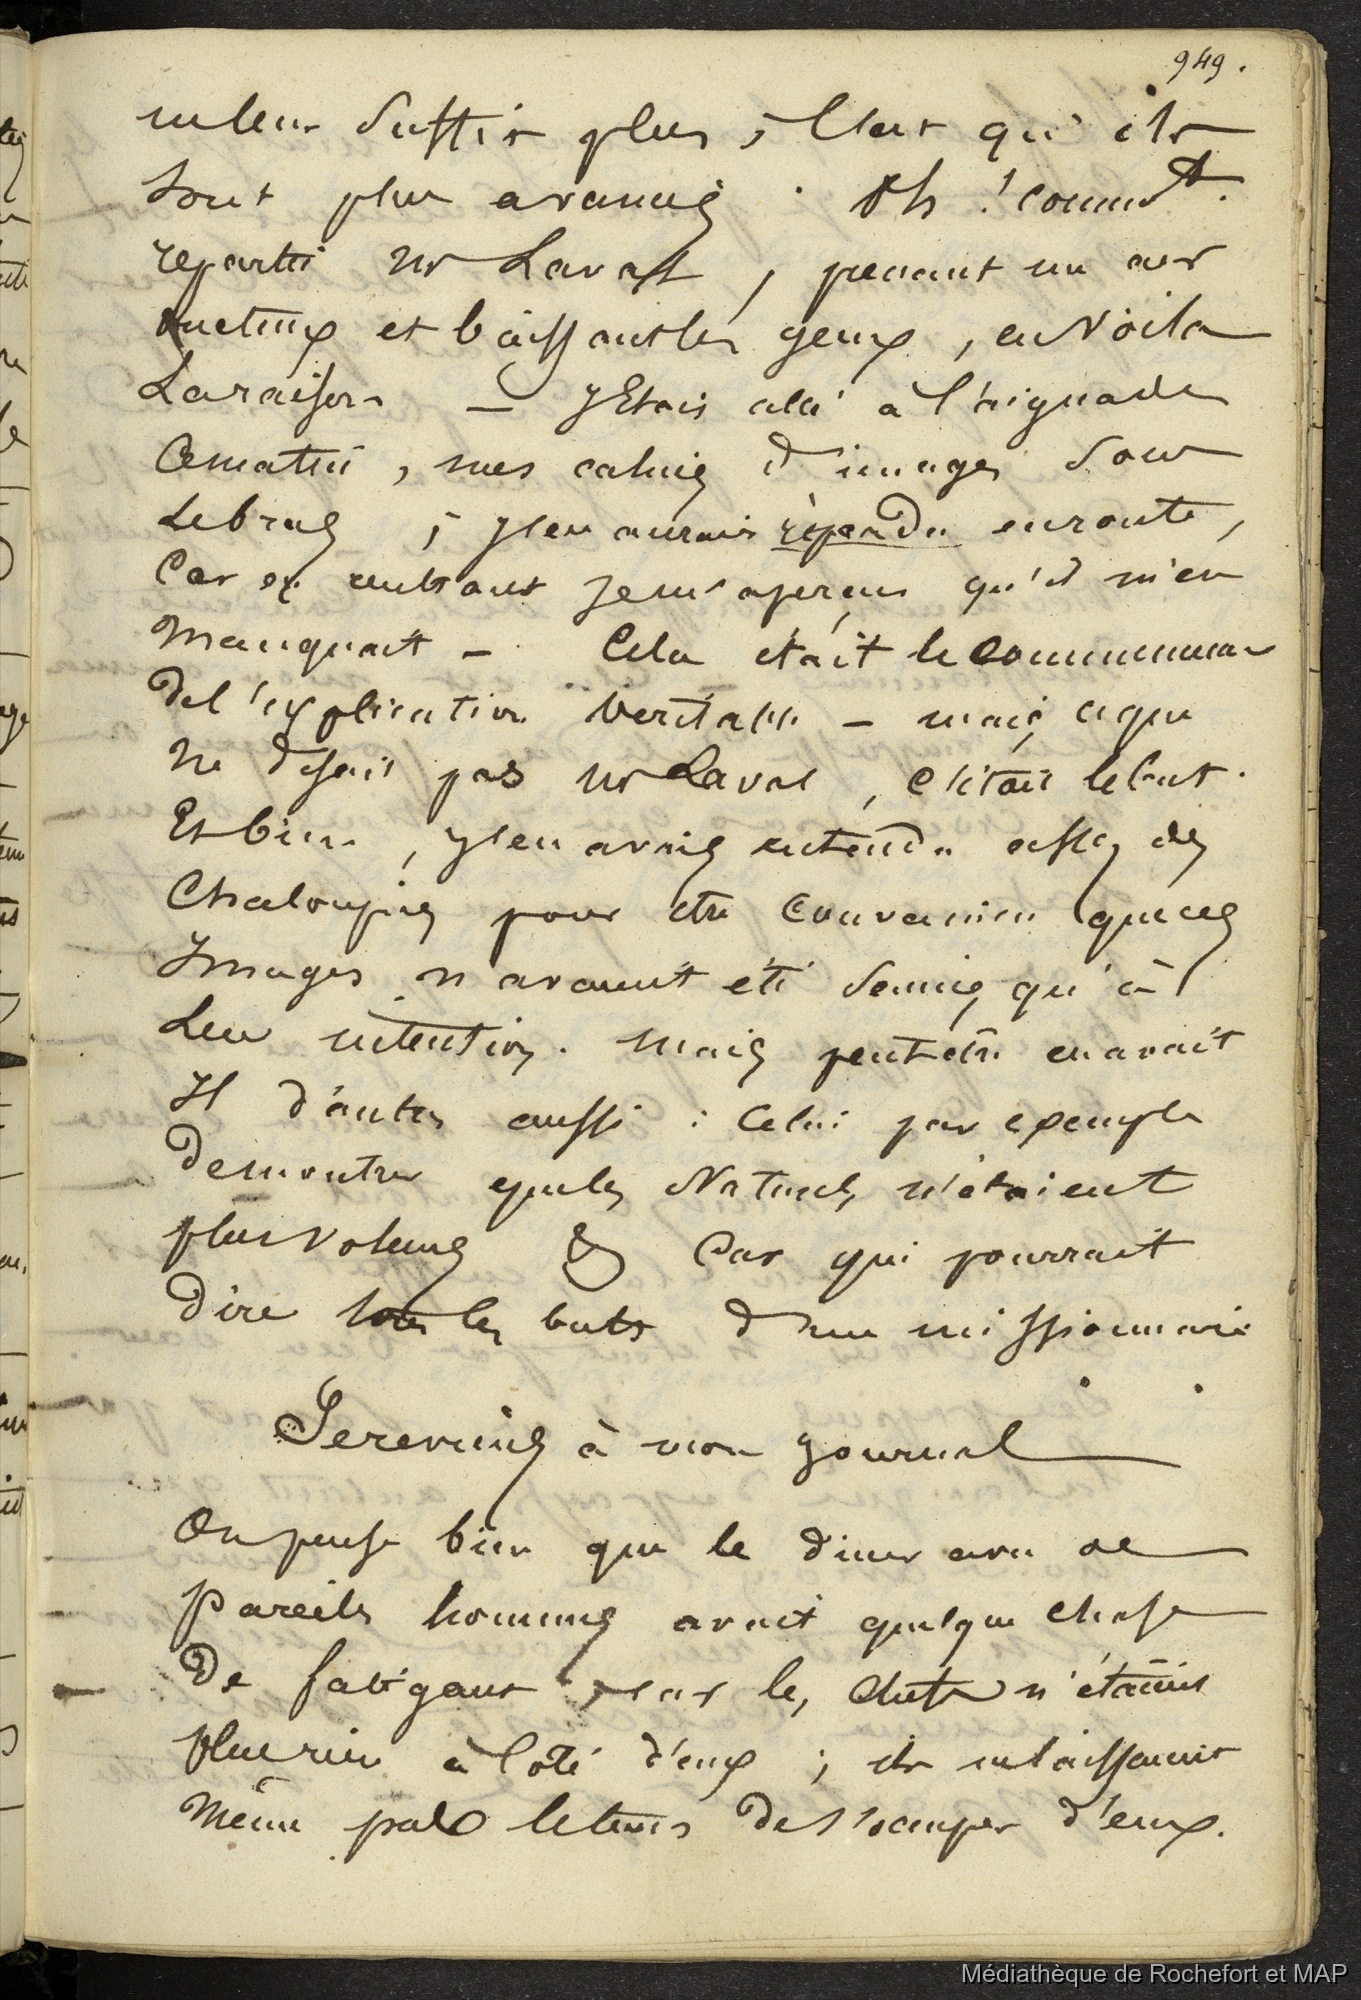 949.
ne leur suffit plus, tant qu'ils
sont plus avancés. Oh! comment.
repartit Mr Laval, prenant un air
onctueux et baissant les yeux, en voila
La raison — J'Etais allé à l'aiguade
Ce matin, mes cahiers d'images sous
Le bras, J'en aurais répandu en route,
Car en rentrant je m'aperçus qu'il m'en
manquait — Cela était le commencement
De l'explication veritable — mais ce que
Ne disait pas Mr Laval, c'était le but.
Et bien, J'en avais entendu assez des
Chaloupiers pour être convaincu que ces
Images n'avaient été semées, qu'à
Leur intention. Mais peut être en avait
Il d'autres aussi : Celui par exemple
De montrer que les Naturels n'étaient
plus voleurs & Car qui pourrait
Dire tous les buts d'un missionnaire
. .
Je reviens à mon journal
On pense bien que le diner avec de
Pareils hommes avait quelque chose
De fatigant, car les chefs n'étaient
plus rien à côté d'eux ; ils ne laissaient
Même pas le tems de s'occuper d'eux.
Médiathèque de Rochefort et MAP